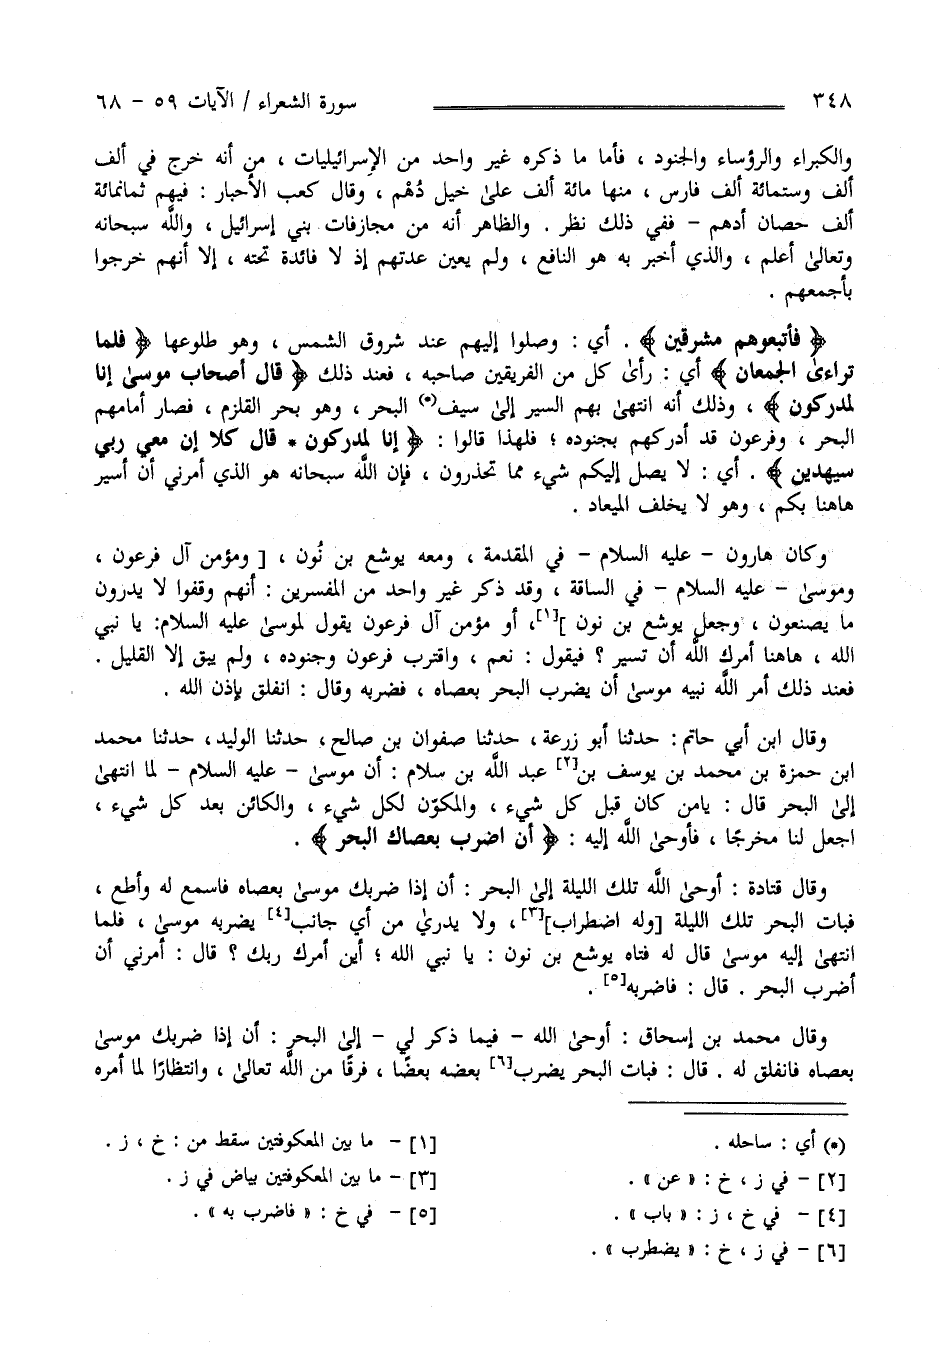 ٣٤٨ سورة الشعراء / الآيات ٥٩ - ٦٨
والكبراء والرؤساء والجنود ، فأما ما ذكره غير واحد من الإسرائيليات ، من أنه خرج في ألف
ألف وستمائة ألف فارس ، منها مائة ألف علىٰ خيل دُهْم ، وقال كعب الأحبار : فيهم ثمانمائة
ألف حصان أدهم - ففي ذلك نظر . والظاهر أنه من مجازفات بني إسرائيل ، واللَّه سبحانه
وتعالىٰ أعلم ، والذي أخبر به هو النافع ، ولم يعين عدتهم إذ لا فائدة تحته ، إلا أنهم خرجوا
بأجمعهم .
﴿ فأتبعوهم مشرقين ﴾ . أي : وصلوا إليهم عند شروق الشمس ، وهو طلوعها ﴿ فلما
تراءى الجمعان ﴾ أي : رأىٰ كل من الفريقين صاحبه ، فعند ذلك ﴿ قال أصحاب موسىٰ إنا
لمدركون ﴾ ، وذلك أنه انتهىٰ بهم السير إلىٰ سيف(*) البحر ، وهو بحر القلزم ، فصار أمامهم
البحر ، وفرعون قد أدركهم بجنوده ؛ فلهذا قالوا : ﴿ إنا لمدركون * قال كلا إن معي ربي
سيهدين ﴾ . أي : لا يصل إليكم شيء مما تحذرون ، فإن اللَّه سبحانه هو الذي أمرني أن أسير
هاهنا بكم ، وهو لا يخلف الميعاد .
وكان هارون - عليه السلام - في المقدمة ، ومعه يوشع بن نُون ، [ ومؤمن آل فرعون ،
وموسىٰ - عليه السلام - في الساقة ، وقد ذكر غير واحد من المفسرين : أنهم وقفوا لا يدرون
ما يصنعون ، وجعل يوشع بن نون ][١]، أو مؤمن آل فرعون يقول لموسىٰ عليه السلام: يا نبي
الله ، هاهنا أمرك اللَّه أن تسير ؟ فيقول : نعم ، واقترب فرعون وجنوده ، ولم يبق إلا القليل .
فعند ذلك أمر اللَّه نبيه موسىٰ أن يضرب البحر بعصاه ، فضربه وقال : انفلق بإذن الله .
وقال ابن أبي حاتم : حدثنا أبو زرعة ، حدثنا صفوان بن صالح، حدثنا الوليد، حدثنا محمد
ابن حمزة بن محمد بن يوسف بن[٢] عبد اللَّه بن سلام : أن موسىٰ - عليه السلام - لما انتهىٰ
إلىٰ البحر قال : يامن كان قبل كل شيء ، والمكوّن لكل شيء ، والكائن بعد كل شيء ،
اجعل لنا مخرجًا ، فأوحىٰ اللَّه إليه : ﴿ أن اضرب بعصاك البحر ﴾ .
وقال قتادة : أوحىٰ اللَّه تلك الليلة إلىٰ البحر : أن إذا ضربك موسىٰ بعصاه فاسمع له وأطع ،
فبات البحر تلك الليلة [وله اضطراب][٣]، ولا يدري من أي جانب[٤] يضربه موسىٰ ، فلما
انتهىٰ إليه موسىٰ قال له فتاه يوشع بن نون : يا نبي الله ؛ أين أمرك ربك ؟ قال : أمرني أن
أضرب البحر . قال : فاضربه[٥] .
وقال محمد بن إسحاق : أوحىٰ الله - فيما ذكر لي - إلىٰ البحر : أن إذا ضربك موسىٰ
بعصاه فانفلق له . قال : فبات البحر يضرب[٦] بعضه بعضًا ، فرقًا من اللَّه تعالىٰ ، وانتظارًا لما أمره
(*) أي : ساحله .
[١] - ما بين المعكوفتين سقط من : خ ، ز .
[٢] - في ز ، خ : « عن » .
[٣] - ما بين المعكوفتين بياض في ز .
[٤] - في خ ، ز : « باب » .
[٥] - في خ : « فاضرب به » .
[٦] - في ز ، خ : « يضطرب » .